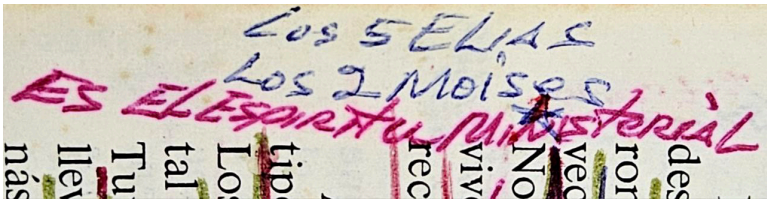 Los 5 ELIAS
Los 2 Moises
ES EL ESPIRITU MINISTERIAL
des
ror
vec
No
vive
rec
tipo
Los
tal
Tu
llev
nás